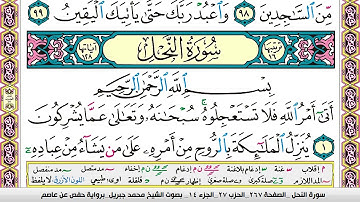 مِّنَ ٱلسَّـٰجِدِينَ ٩٨ وَٱعۡبُدۡ رَبَّكَ حَتَّىٰ يَأۡتِيَكَ ٱلۡيَقِينُ ٩٩
سُورَةُ النَّحۡلِ
بِسۡمِ ٱللَّهِ ٱلرَّحۡمَـٰنِ ٱلرَّحِيمِ
أَتَىٰٓ أَمۡرُ ٱللَّهِ فَلَا تَسۡتَعۡجِلُوهُۚ سُبۡحَـٰنَهُۥ وَتَعَـٰلَىٰ عَمَّا يُشۡرِكُونَ ١
يُنَزِّلُ ٱلۡمَلَـٰٓئِكَةَ بِٱلرُّوحِ مِنۡ أَمۡرِهِۦ عَلَىٰ مَن يَشَآءُ مِنۡ عِبَادِهِۦٓ
سورة النحل _الصفحة ٢٦٧_ الحزب ٢٧_ الجزء ١٤ _ بصوت الشيخ محمد جبريل_ برواية حفص عن عاصم